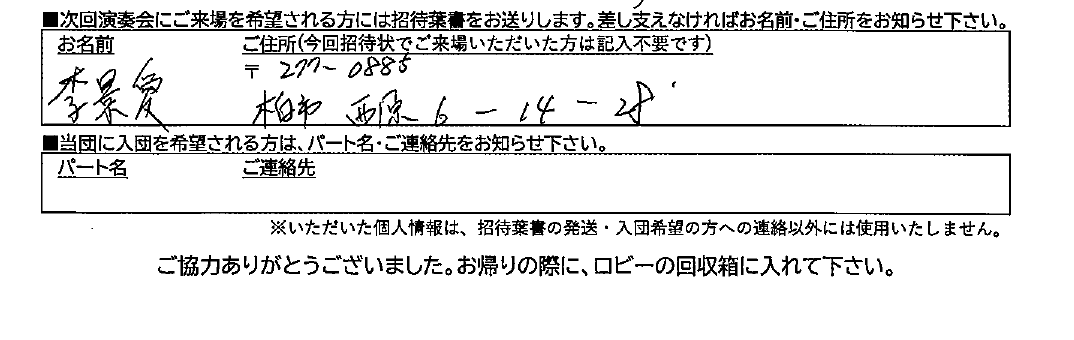 ■次回演奏会にご来場を希望される方には招待葉書をお送りします。差し支えなければお名前・ご住所をお知らせ下さい。
お名前 ご住所(今回招待状でご来場いただいた方は記入不要です)
〒 277-0885
李景愛 柏市 西原 6-14-28
■当団に入団を希望される方は、パート名・ご連絡先をお知らせ下さい。
パート名 ご連絡先
※いただいた個人情報は、招待葉書の発送・入団希望の方への連絡以外には使用いたしません。
ご協力ありがとうございました。お帰りの際に、ロビーの回収箱に入れて下さい。